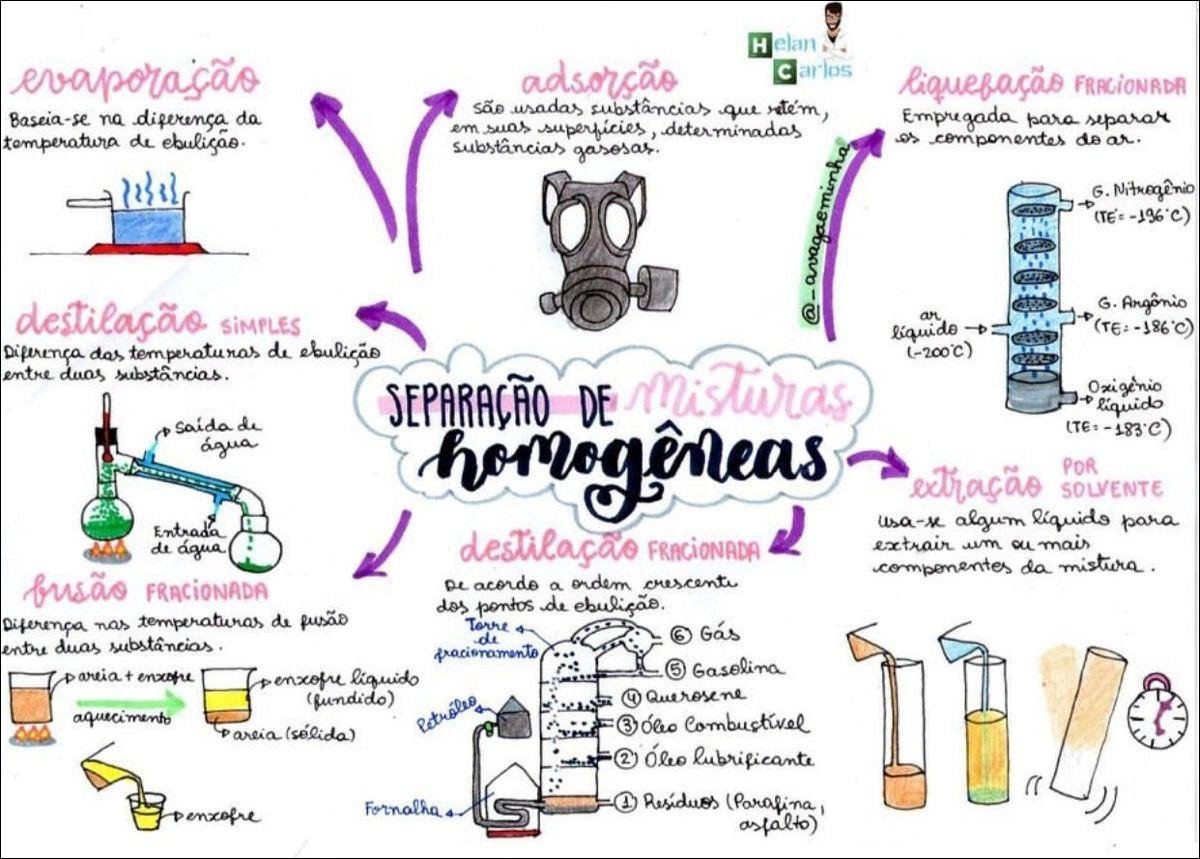 Helan
Carlos
evaporação
Baseia-se na diferença da
temperatura de ebulição.
adsorção
São usadas substâncias que retém,
em suas superfícies, determinadas
substâncias gasosas.
@-avagaeminha
liquefação FRACIONADA
Empregada para separar
os componentes do ar.
G. Nitrogênio
(TE = -196°C)
G. Argônio
(TE = -186°C)
ar
líquido
(-200°C)
Oxigênio
líquido
(TE = -183°C)
destilação SIMPLES
Diferença das temperaturas de ebulição
entre duas substâncias.
Saída de
água
Entrada
de água
SEPARAÇÃO DE misturas
homogêneas
extração POR
SOLVENTE
Usa-se algum líquido para
extrair um ou mais
componentes da mistura.
fusão FRACIONADA
Diferença nas temperaturas de fusão
entre duas substâncias.
areia + enxofre
aquecimento
enxofre líquido
(fundido)
areia (sólida)
enxofre
destilação FRACIONADA
De acordo a ordem crescente
dos pontos de ebulição.
Torre
de
fracionamento
Petróleo
Fornalha
6 Gás
5 Gasolina
4 Querosene
3 Óleo Combustível
2 Óleo lubrificante
1 Resíduos (Parafina,
asfalto)